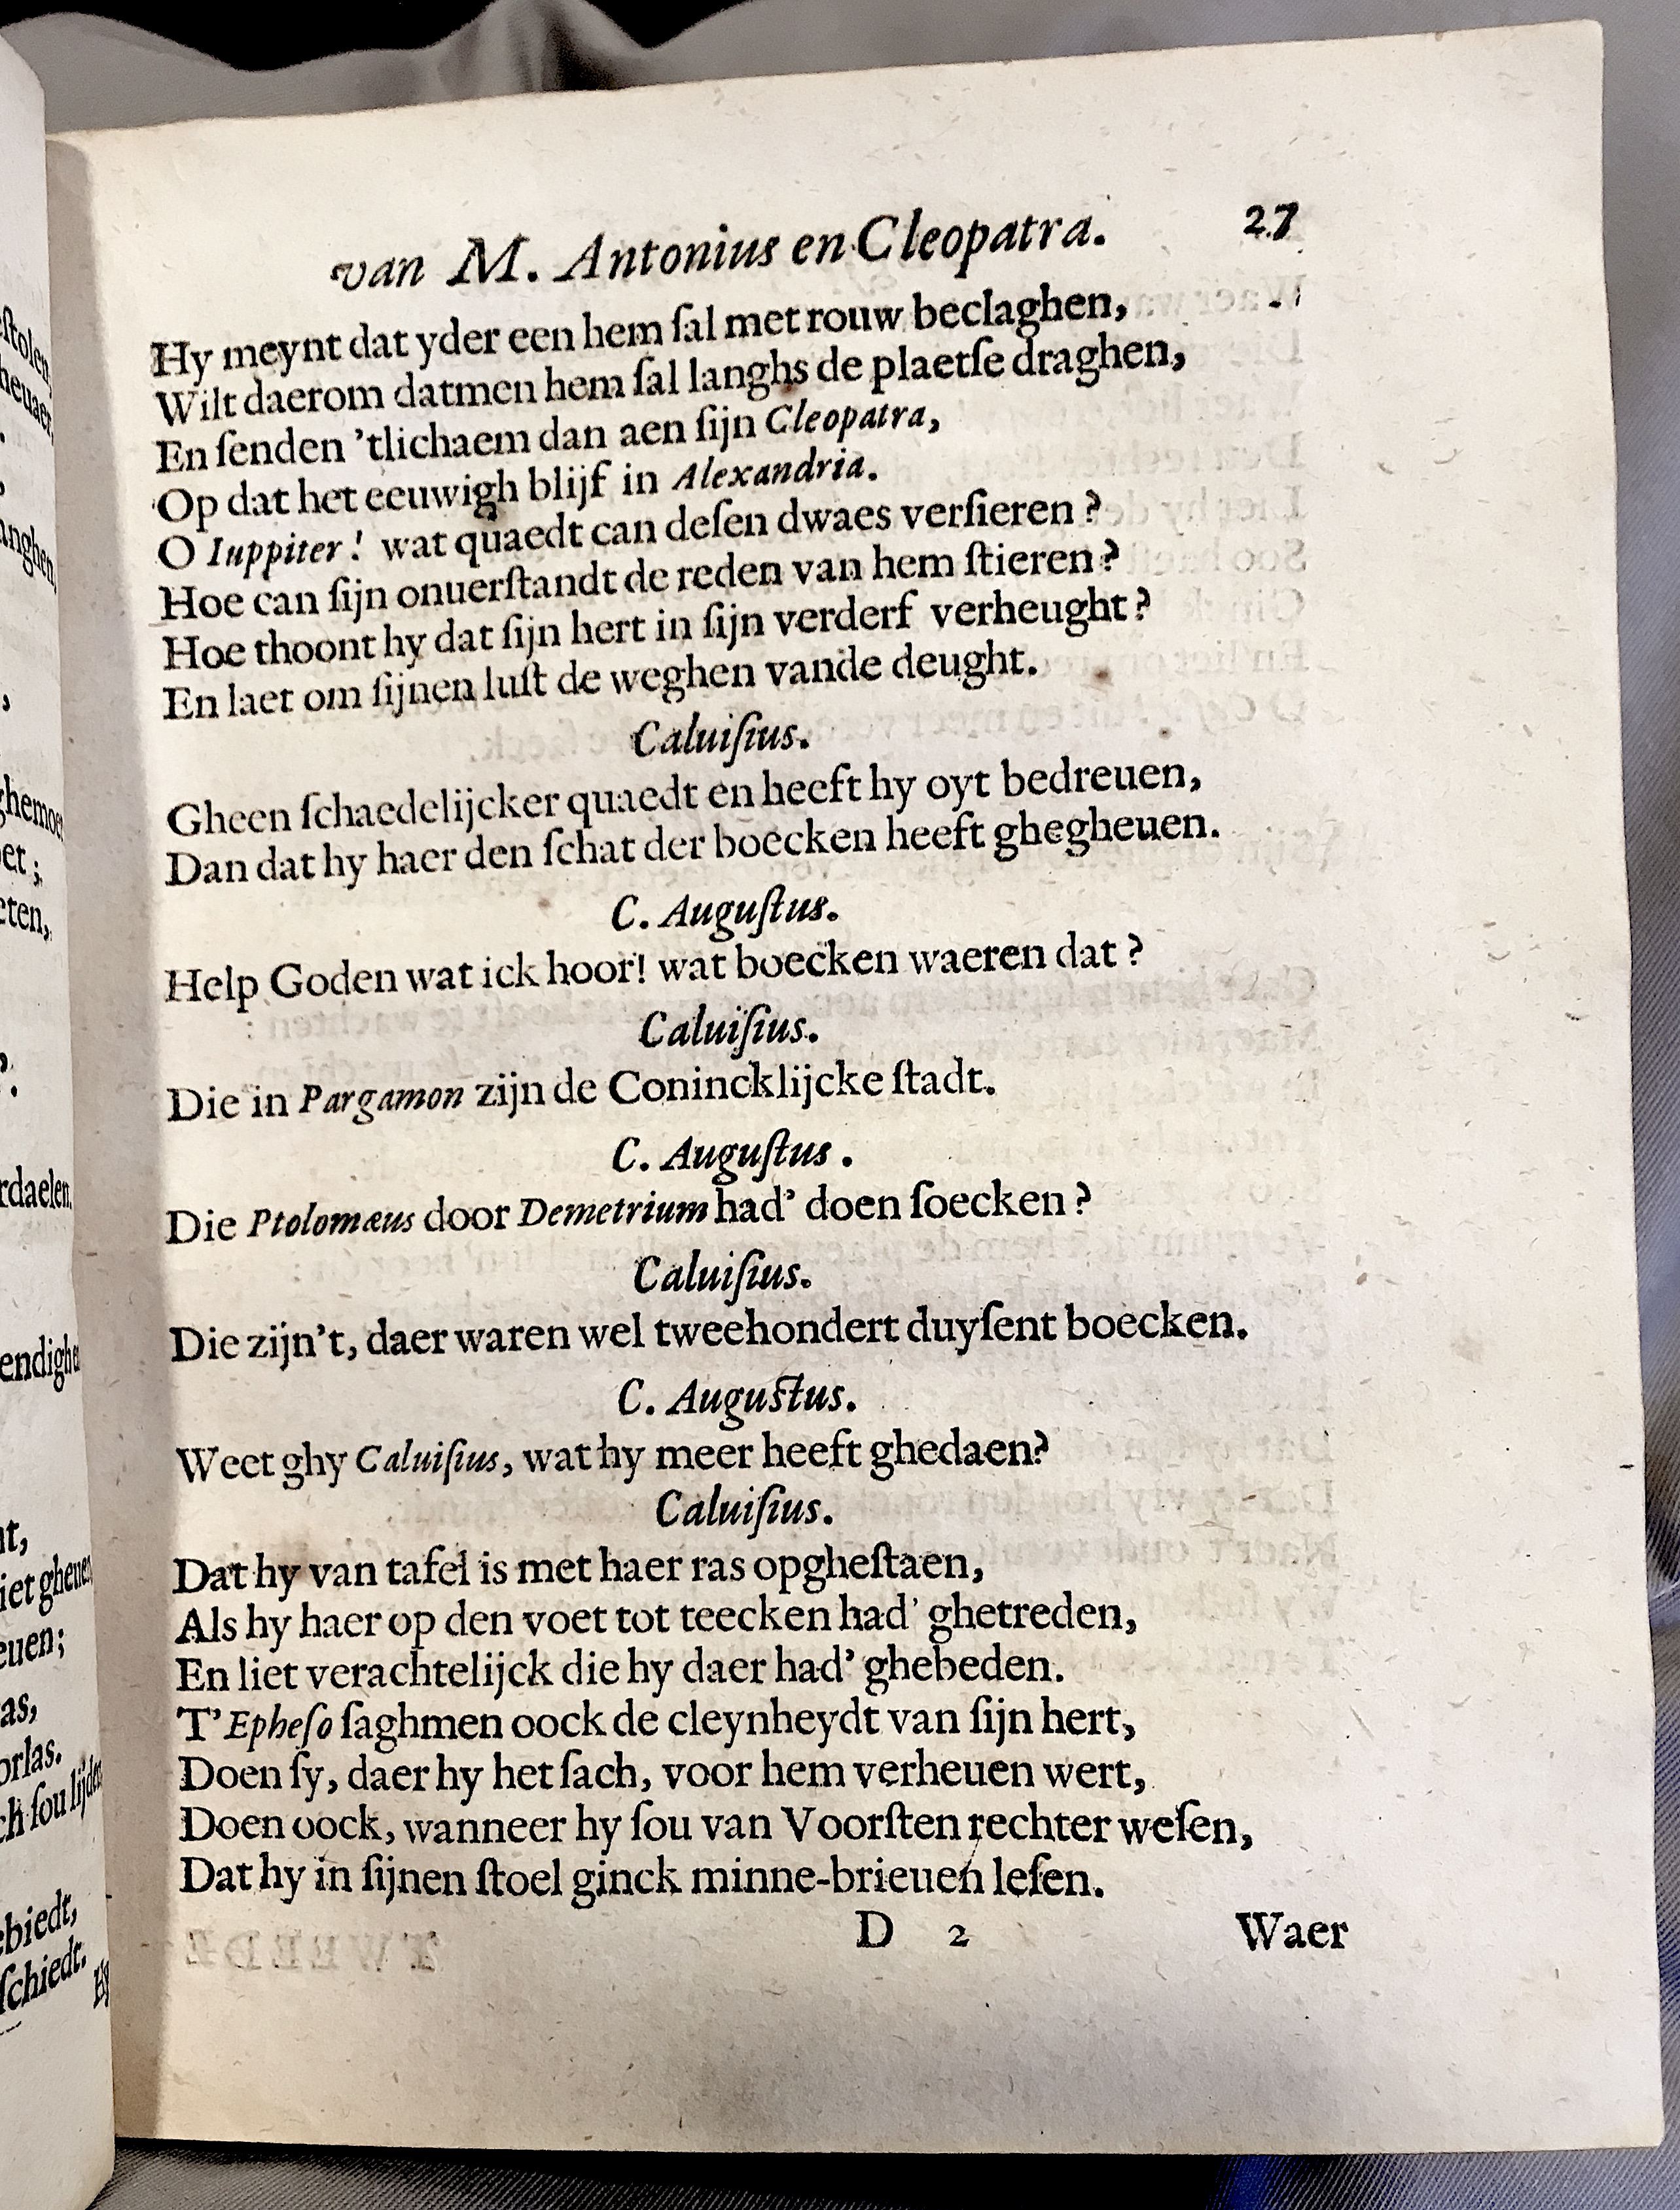 van M. Antonius en Cleopatra. 27
Hy meynt dat yder een hem ſal met rouw beclaghen,
Wilt daerom datmen hem ſal langhs de plaetſe draghen,
En ſenden ’tlichaem dan aen ſijn Cleopatra,
Op dat het eeuwigh blijf in Alexandria.
O Iuppiter! wat quaedt can deſen dwaes verſieren?
Hoe can ſijn onuerſtandt de reden van hem ſtieren?
Hoe thoont hy dat ſijn hert in ſijn verderf verheught?
En laet om ſijnen luſt de weghen vande deught.
Caluiſius.
Gheen ſchaedelijcker quaedt en heeft hy oyt bedreuen,
Dan dat hy haer den ſchat der boecken heeft ghegheuen.
C. Auguſtus.
Help Goden wat ick hoor! wat boecken waeren dat?
Caluiſius.
Die in Pargamon zijn de Conincklijcke ſtadt.
C. Auguſtus.
Die Ptolomæus door Demetrium had’ doen ſoecken?
Caluiſius.
Die zijn’t, daer waren wel tweehondert duyſent boecken.
C. Auguſtus.
Weet ghy Caluiſius, wat hy meer heeft ghedaen?
Caluiſius.
Dat hy van tafel is met haer ras opgheſtaen,
Als hy haer op den voet tot teecken had’ ghetreden,
En liet verachtelijck die hy daer had’ ghebeden.
T’Epheſo ſaghmen oock de cleynheydt van ſijn hert,
Doen ſy, daer hy het ſach, voor hem verheuen wert,
Doen oock, wanneer hy ſou van Voorſten rechter weſen,
Dat hy in ſijnen ſtoel ginck minne-brieuen leſen.
D 2 Waer